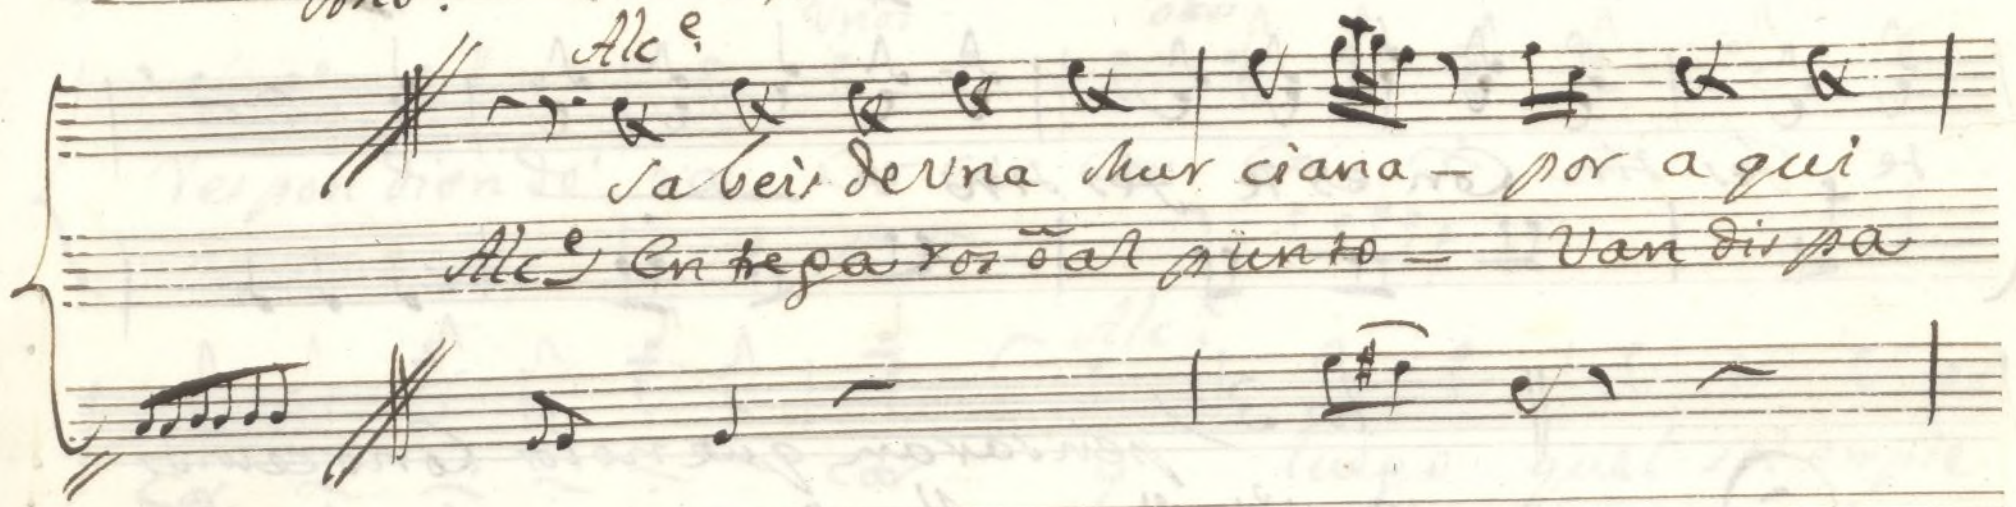 Alc.e
sa beis de vna Mur ciana - por a qui
Alc.e En trega ros õ al punto - Van dis pa